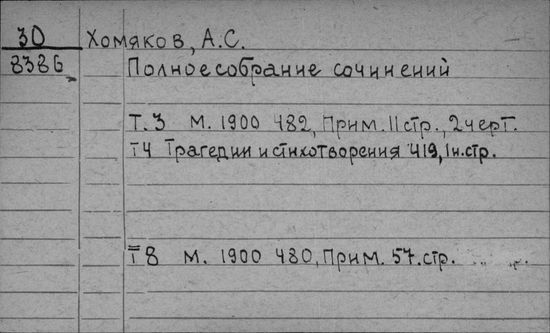 30 Хомяков, А.С.
8386 Полное собрание сочинений
Т.3 М. 1900 482, Прим. 11 стр., 2 черт.
Т4 Трагедии и стихотворения 419, 1н.стр.
Т8 М. 1900 480, Прим. 57.стр.